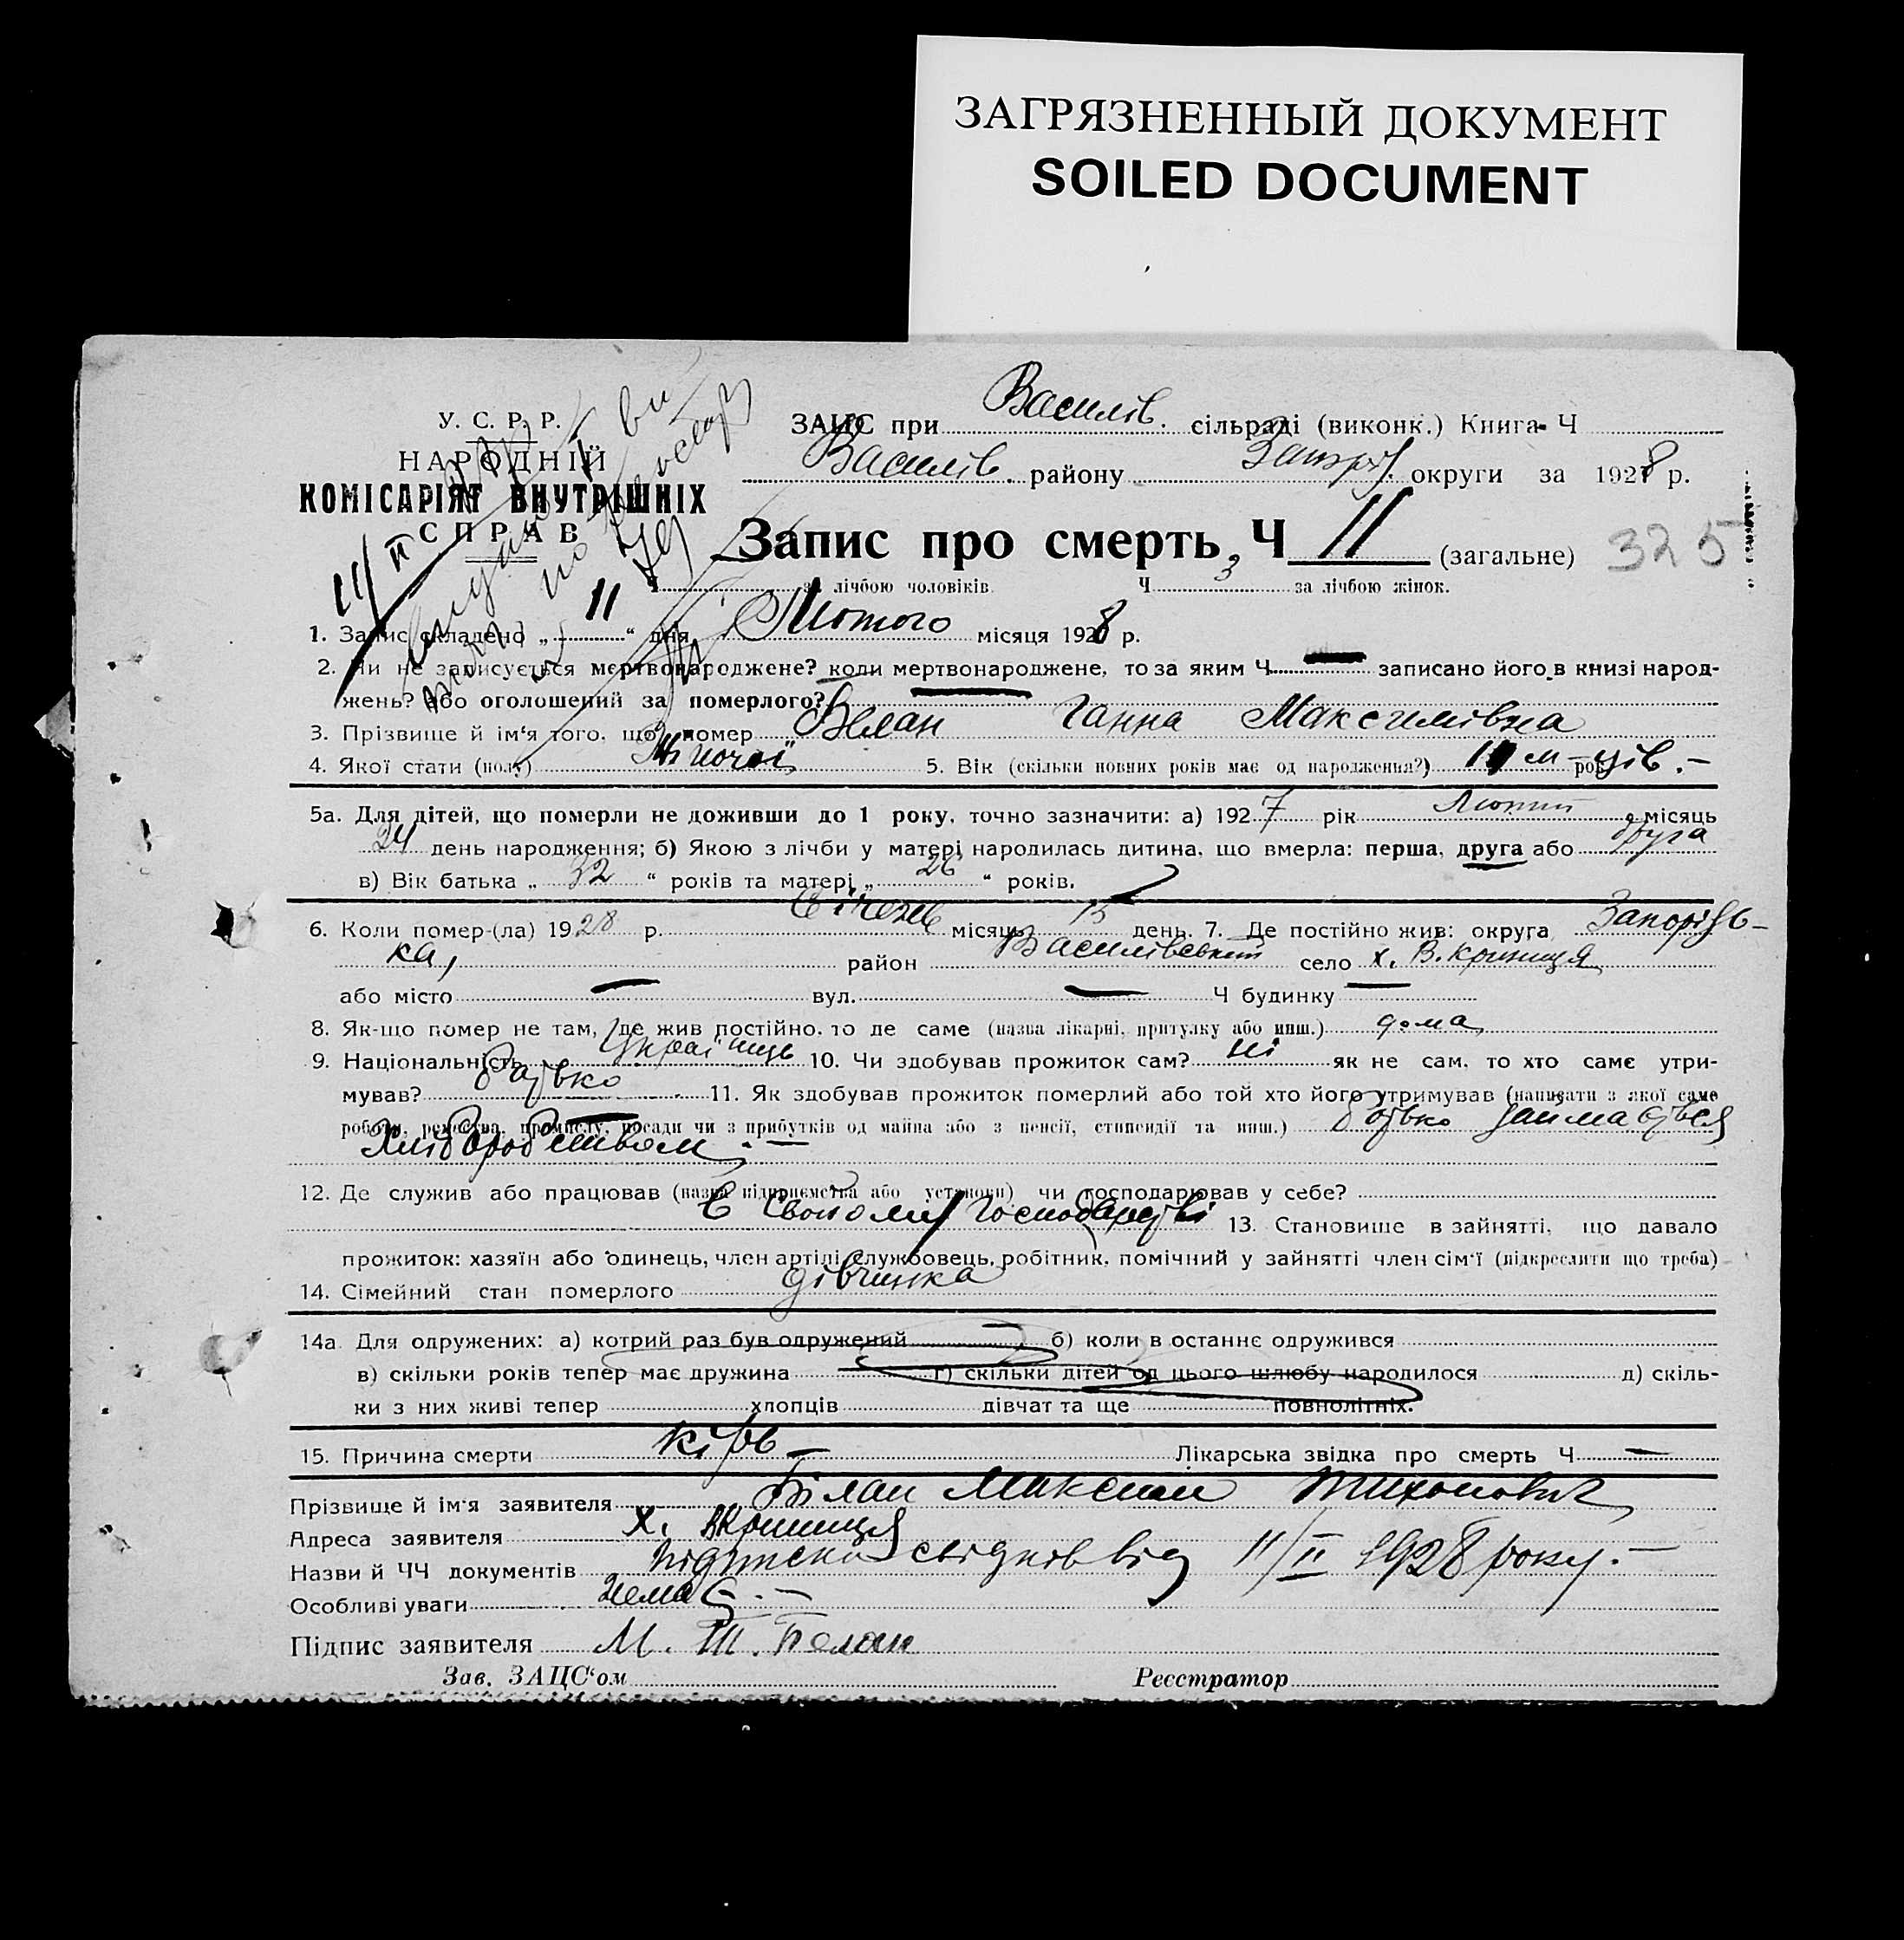 ЗАГРЯЗНЕННЫЙ ДОКУМЕНТ
SOILED DOCUMENT
У. С. Р. Р.
НАРОДНІЙ
КОМІСАРІЯТ ВНУТРІШНІХ
СПРАВ
11/II
ЗАЦС при Василів. сільраді (виконк.) Книга Ч
Василів. району Запоріз. округи за 1928 р.
Запис про смерть, Ч 11 (загальне) 325
Ч за лічбою чоловіків Ч 3 за лічбою жінок.
1. Запис складено „ 11 “ дня Лютого місяця 1928 р.
2. Чи не записується мертвонароджене? коли мертвонароджене, то за яким Ч — записано його в книзі народ-
жень? або оголошений за померлого?
3. Прізвище й ім'я того, що помер Белан Ганна Максимівна
4. Якої стати (полу) Жіночої 5. Вік (скільки повних років має од народження?) 11 м-ців. –
5а. Для дітей, що померли не доживши до 1 року, точно зазначити: а) 1927 рік Лютий місяць
24 день народження; б) Якою з лічби у матері народилась дитина, що вмерла: перша, друга або друга
в) Вік батька „ 32 “ років та матері „ 26 “ років.
6. Коли помер-(ла) 1928 р. Січень місяць 15 день. 7. Де постійно жив: округа Запорізь-
ка, район Василівський село х. В. Криниця
або місто — вул. — Ч будинку —
8. Як-що помер не там, де жив постійно, то де саме (назва лікарні, притулку або инш.) дома
9. Національність Українець 10. Чи здобував прожиток сам? ні як не сам, то хто саме утри-
мував? батько 11. Як здобував прожиток померлий або той хто його утримував (написати з якої саме
роботи, ремества, промислу, посади чи з прибутків од майна або з пенсії, стипендії та инш.) батько займається
Хліборобством. —
12. Де служив або працював (назва підприємства або установи) чи господарював у себе?
В своєму господарстві 13. Становище в зайнятті, що давало
прожиток: хазяїн або одинець, член артілі, службовець, робітник, помічний у зайнятті член сім'ї (підкреслити що треба)
14. Сімейний стан померлого дівчинка
14а. Для одружених: а) котрий раз був одружений б) коли в останнє одружився
в) скільки років тепер має дружина г) скільки дітей од цього шлюбу народилося д) скіль-
ки з них живі тепер хлопців дівчат та ще повнолітніх.
15. Причина смерти кір — Лікарська звідка про смерть Ч —
Прізвище й ім'я заявителя Білан Максим Тихонович
Адреса заявителя х. В Криниця
Назви й ЧЧ документів підписка свідків від 11/II 1928 року. —
Особливі уваги немає. —
Підпис заявителя М. Т. Белан
Зав. ЗАЦС'ом Реєстратор